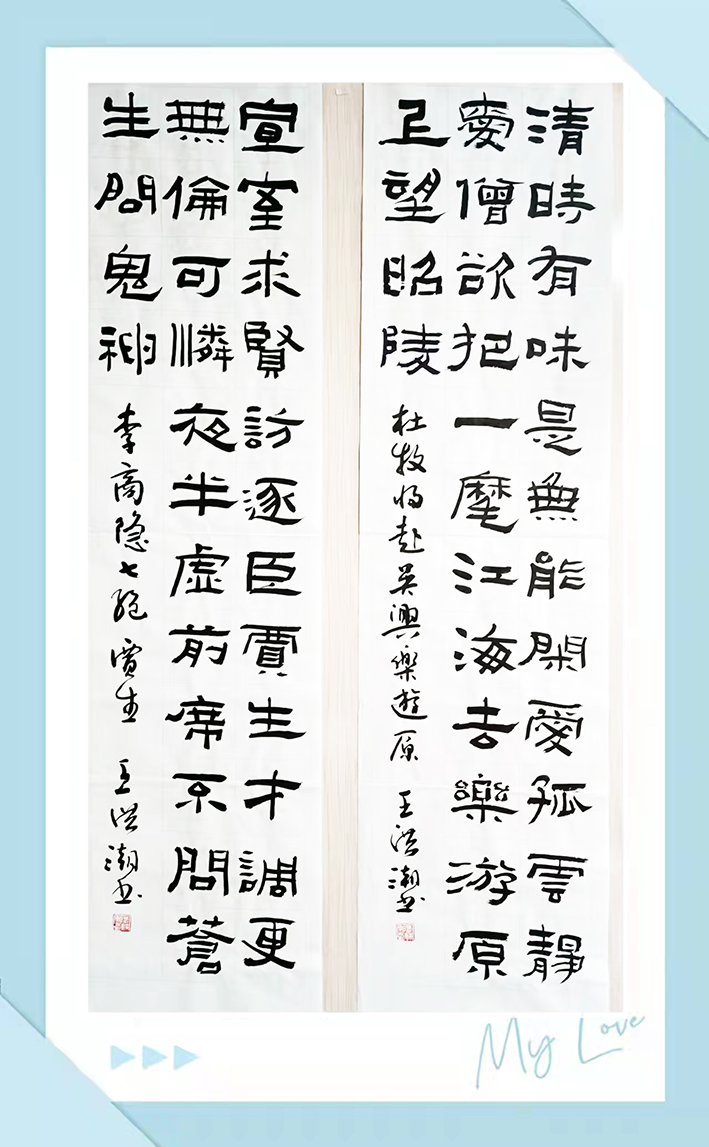 清時有味是無能閑愛孤雲靜
愛僧欲把一麾江海去樂游原
上望昭陵
杜牧将赴吳興樂遊原 王洪潮书
宣室求賢訪逐臣賈生才調更
無倫可憐夜半虛前席不問蒼
生問鬼神
李商隐七絕賈生 王洪潮书
My Love